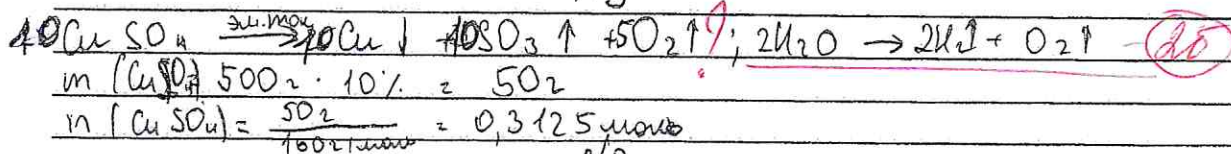 10CuSO₄ эл.ток→ 10Cu↓ + 10SO₃↑ + 5O₂↑; 2H₂O → 2H₂↑ + O₂↑ 2б
m (CuSO₄) 500г · 10% = 50г
n (CuSO₄) = 50г / 160г/моль = 0,3125 моль